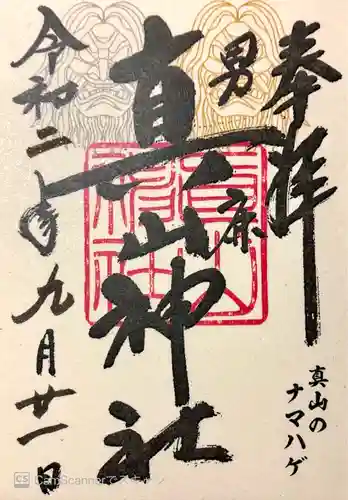 奉拝
真山の
ナマハゲ
男鹿
真山神社
令和二年九月廿一日
CS CamScanner でスキャン